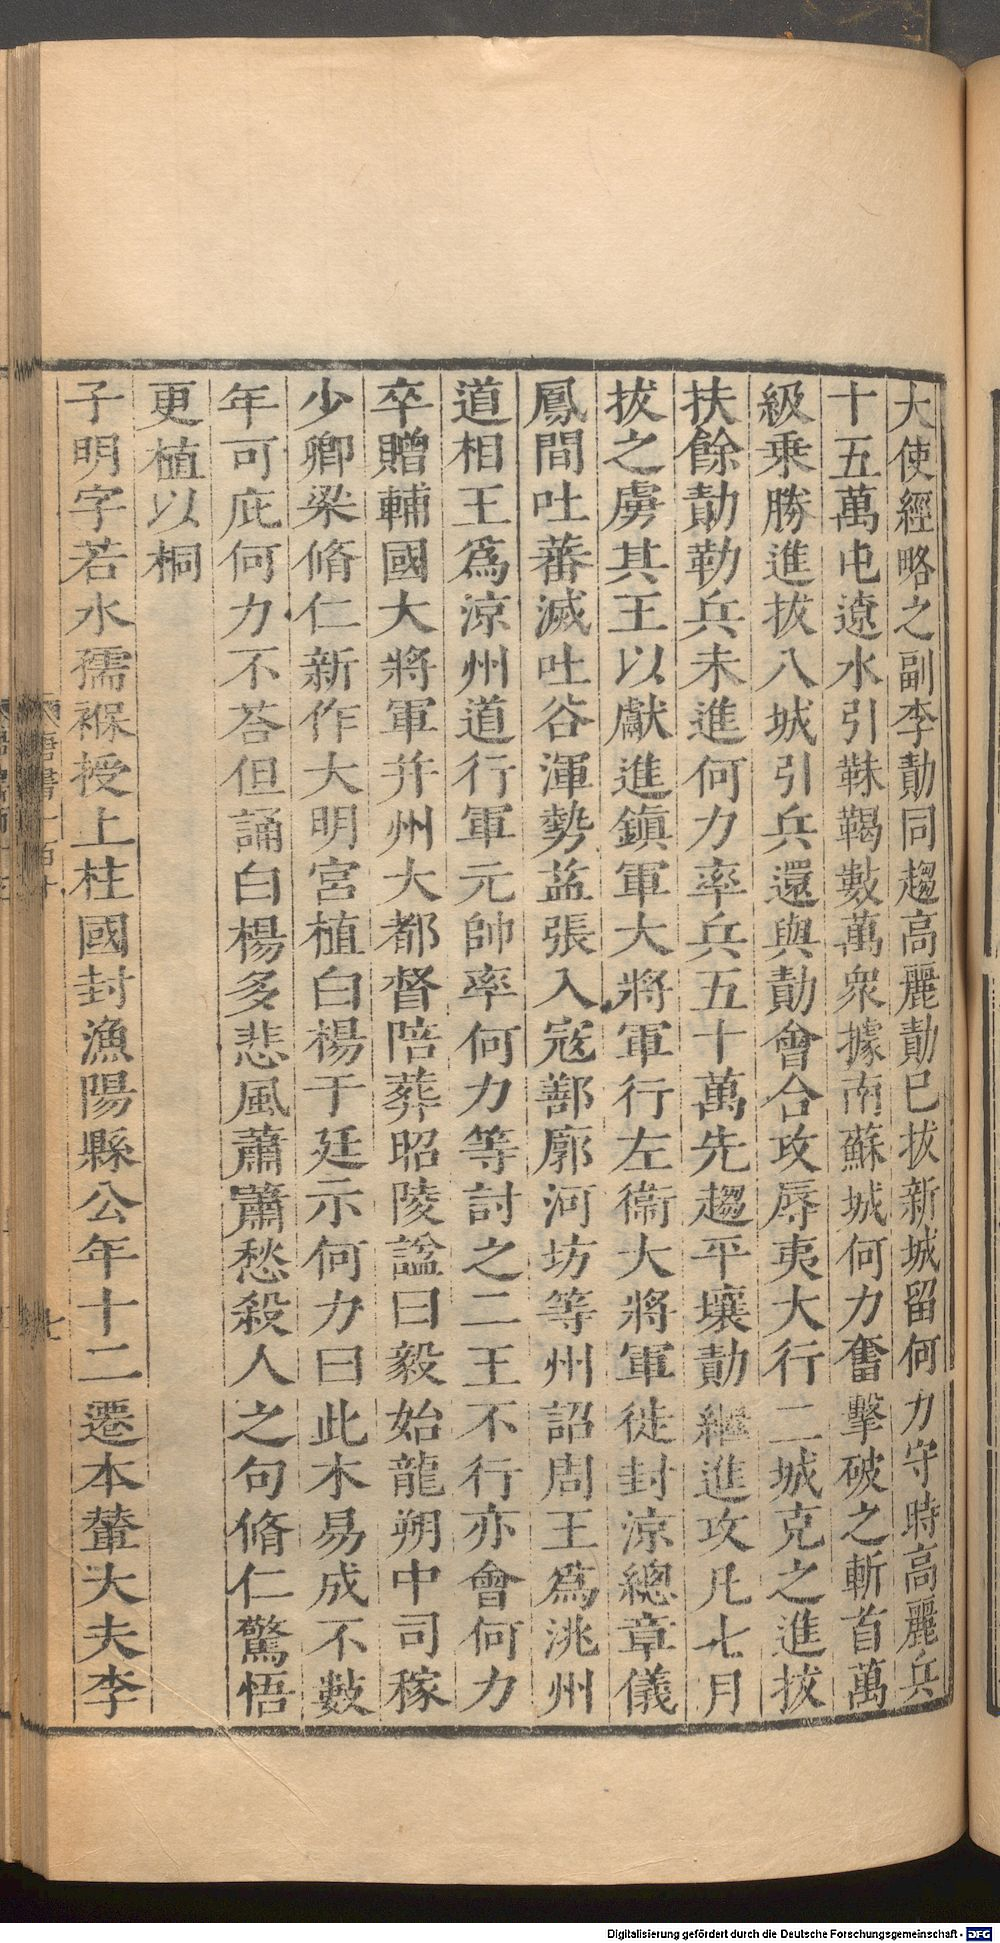 大使經略之副李勣同趨高麗勣已拔新城留何力守時高麗兵
十五萬屯遼水引靺鞨數萬衆據南蘇城何力奮擊破之斬首萬
級乗勝進拔八城引兵還與勣會合攻辱夷大行二城克之進拔
扶餘勣勒兵未進何力率兵五十萬先趨平壤勣繼進攻凡七月
拔之虜其王以獻進鎮軍大將軍行左衞大將軍徙封涼總章儀
鳳間吐蕃滅吐谷渾勢益張入寇鄯廓河坊等州詔周王爲洮州
道相王爲涼州道行軍元帥率何力等討之二王不行亦會何力
卒贈輔國大將軍并州大都督陪葬昭陵諡曰毅始龍朔中司稼
少卿梁脩仁新作大明宮植白楊于廷示何力曰此木易成不數
年可庇何力不荅但誦白楊多悲風蕭蕭愁殺人之句脩仁驚悟
更植以桐
子明字若水孺褓授上柱國封漁陽縣公年十二遷本輦大夫李
唐書一百十
七
Digitalisierung gefördert durch die Deutsche Forschungsgemeinschaft - DFG